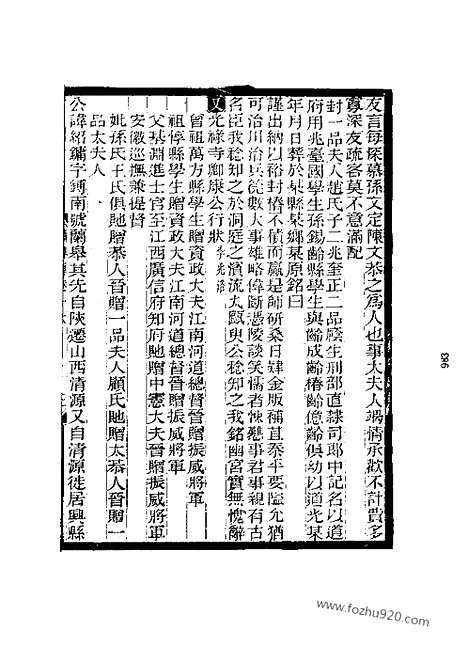 友言每深慕孫文定陳文恭之為人也事太夫人竭情承歡不計貲多
寡深友疏客莫不意滿配
封一品夫人趙氏子二兆奎正二品廕生刑部直隸司郎中記名以道
府用兆臺國學生孫錫齡縣學生與齡成齡椿齡億齡俱幼以道光某
年月日葬於某縣某鄉某原銘曰
謹出納以裕封樁不積而贏是師研桑日肄金版補苴泰平要隘允猶
可治川治兵從數大事雄略偉斷憑陵談笑懦者悚戀事君事親有古
名臣我稔知之於洞庭之濱流
公稔知之我銘幽宮實無愧辭
又光祿寺卿康公行狀
曾祖萬方縣學生贈資政大夫江南河道總督晉贈振威將軍
祖惇縣學生贈資政大夫江南河道總督晉贈振威將軍
父基淵進士官至江西廣信府知府貤贈中憲大夫晉贈振威將軍
安徽巡撫兼提督
妣孫氏王氏俱貤贈恭人晉贈一品夫人顧氏貤贈太恭人晉贈一
品太夫人
公諱紹鏞字鎛南號蘭皋其先自陝遷山西清源又自清源徙居興縣
983
www.fozhu920.com